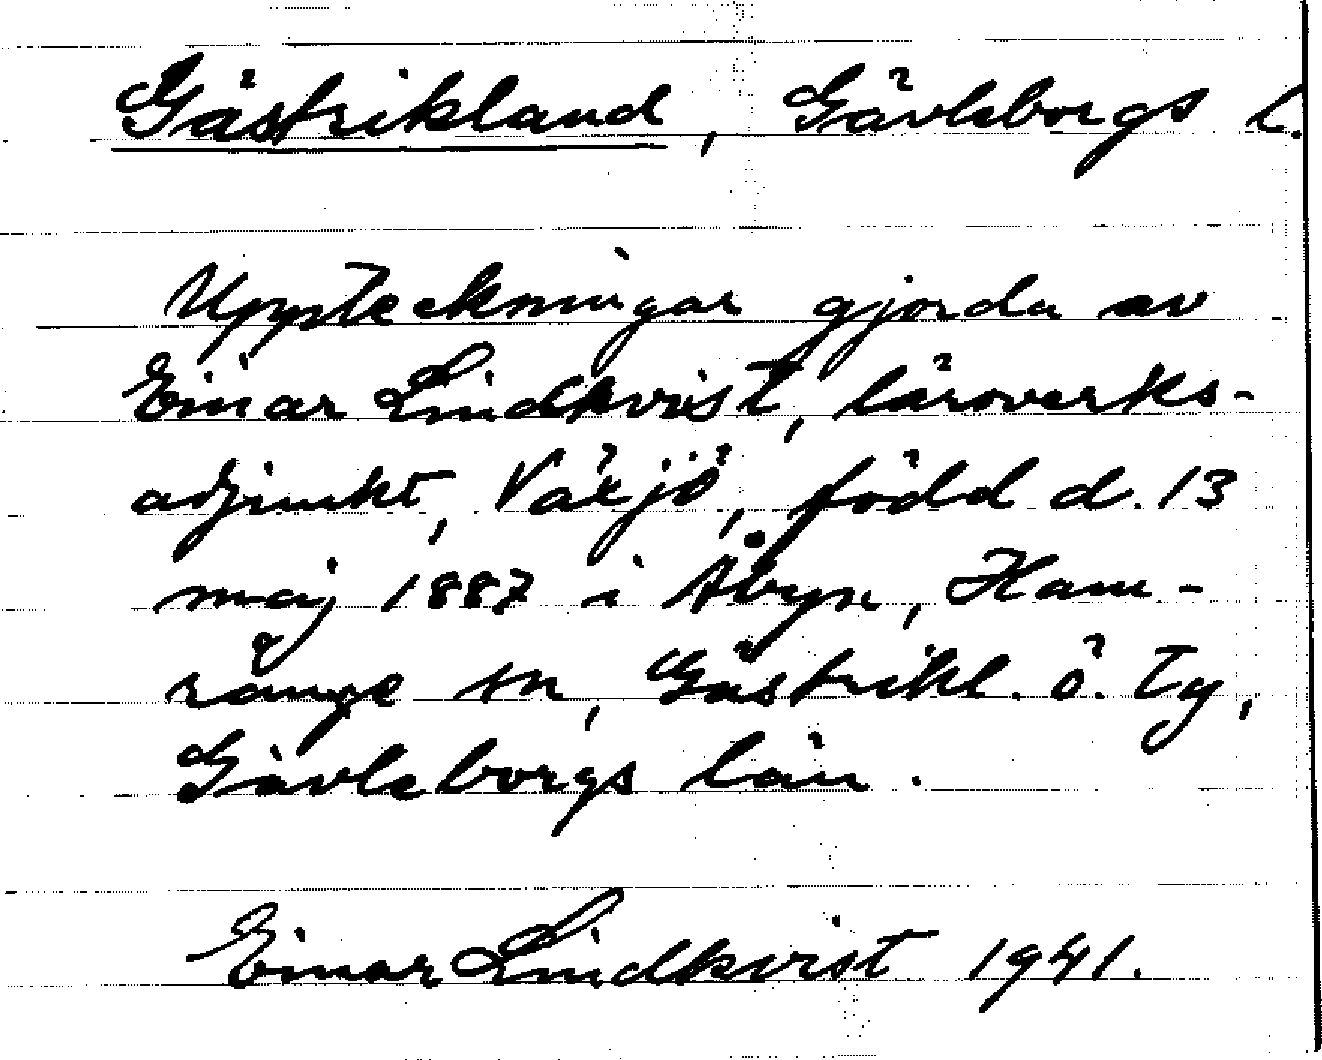 Gästrikland, Gävleborgs l.
Uppteckningar gjorda av
Einar Lindkvist, läroverks-
adjunkt, Växjö, född d. 13
maj 1887 i Åbyn, Ham-
rånge sn, Gästrikl. ö. tg,
Gävleborgs län.
Einar Lindkvist 1941.